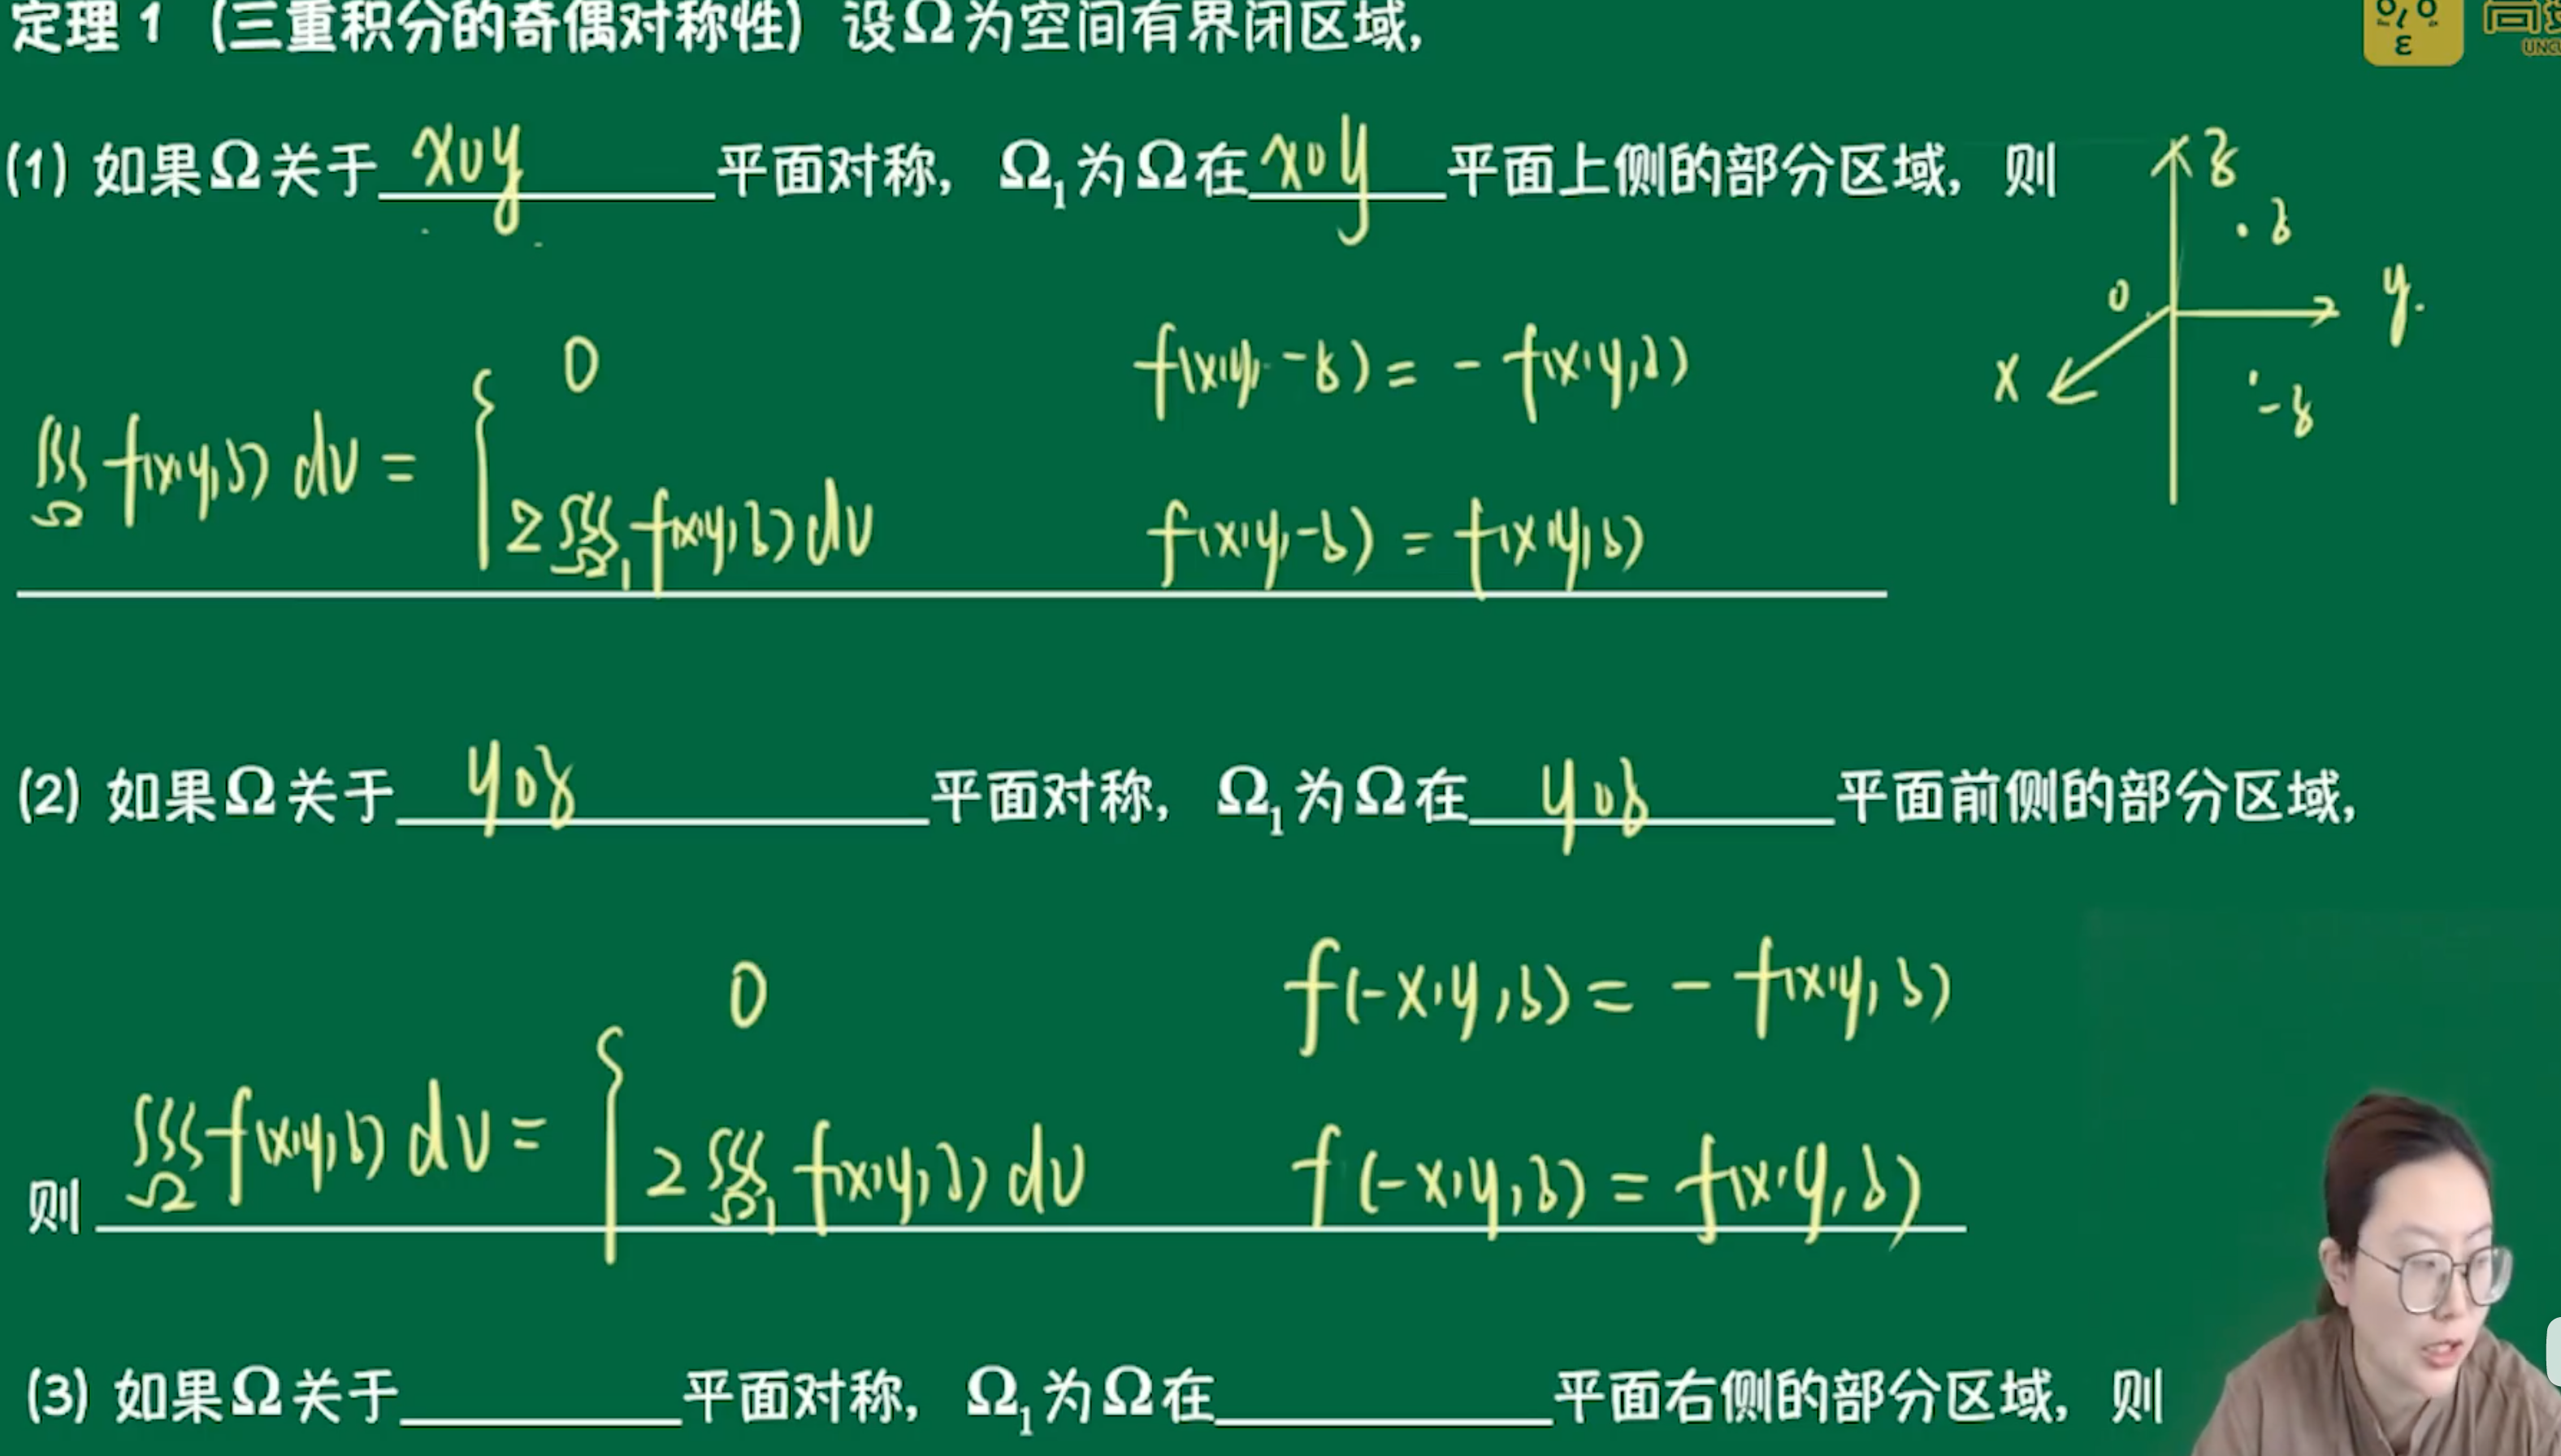 定理 1 (三重积分的奇偶对称性) 设Ω为空间有界闭区域,
(1) 如果Ω关于 xoy 平面对称, Ω₁为Ω在 xoy 平面上侧的部分区域, 则
z
.z
0
y
x
-z
∭_Ω f(x,y,z) dv = { 0 f(x,y,-z) = -f(x,y,z)
2∭_Ω₁ f(x,y,z) dv f(x,y,-z) = f(x,y,z)
(2) 如果Ω关于 yoz 平面对称, Ω₁为Ω在 yoz 平面前侧的部分区域,
则 ∭_Ω f(x,y,z) dv = { 0 f(-x,y,z) = -f(x,y,z)
2∭_Ω₁ f(x,y,z) dv f(-x,y,z) = f(x,y,z)
(3) 如果Ω关于______平面对称, Ω₁为Ω在______平面右侧的部分区域, 则